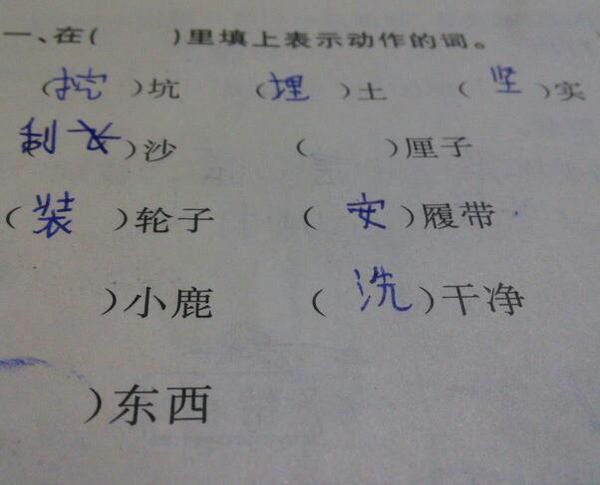 一、在( )里填上表示动作的词。
(挖)坑 (埋)土 (坚)实
刮)沙 ( )厘子
(装)轮子 (安)履带
)小鹿 (洗)干净
)东西